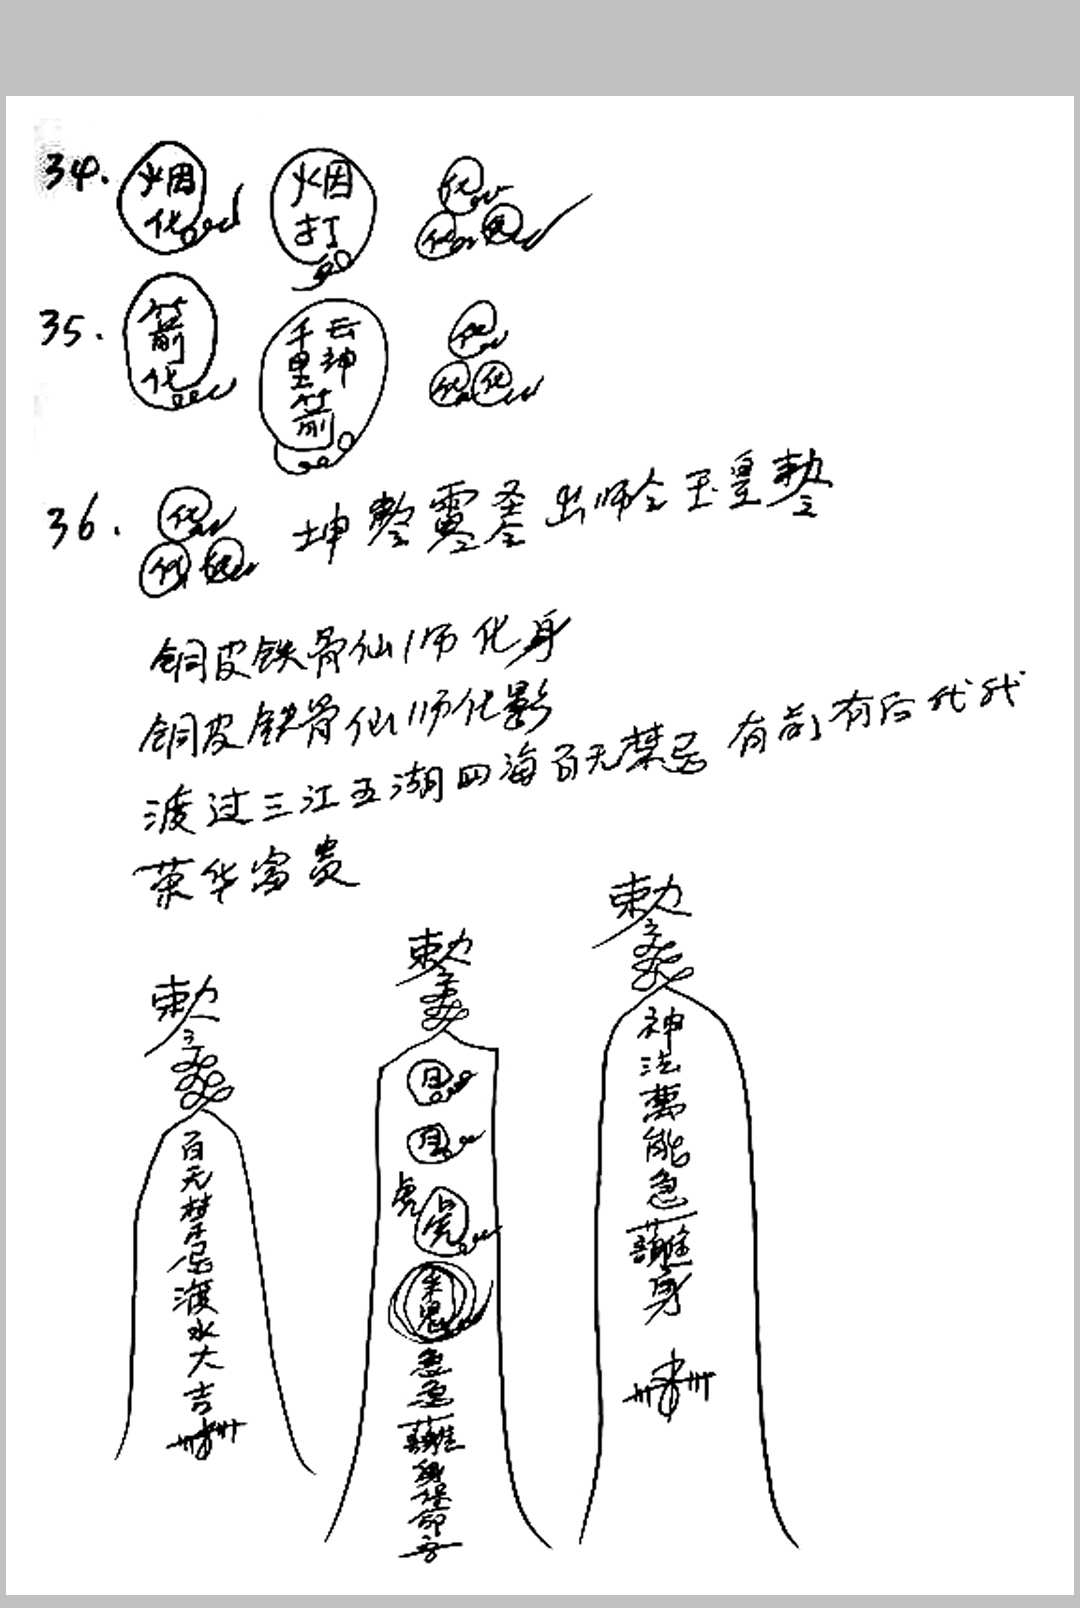 34. 烟化 烟打 化 化
35. 箭化 千里箭 云神 化 化 化
36. 化 化 坤 出师 玉皇勅令
铜皮铁骨仙师化身
铜皮铁骨仙师化影
渡过三江五湖四海百无禁忌 有前有后代代
荣华富贵
勅令
百无禁忌渡水大吉
勅令
日
月
虎 虎
急急
身保命
勅令
神法萬能急
身